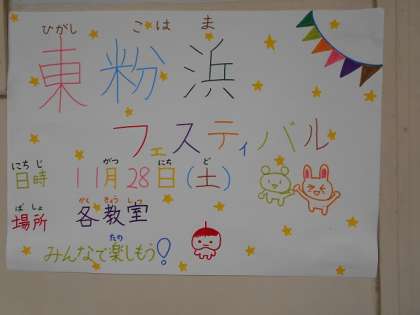 ひがし こはま
東粉浜
フェスティバル
にちじ がつ にち ど
日時 11月28日(土)
ばしょ かく きょう しつ
場所 各教室
たの
みんなで楽しもう!